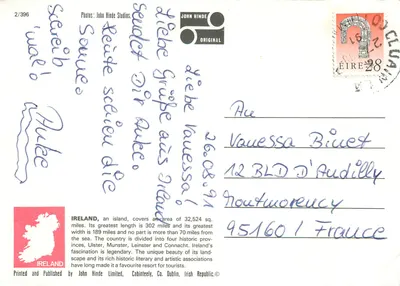 2/396
Photos: John Hinde Studios.
JOHN HINDE
ORIGINAL
ÉIRE 28
26.08.91
Liebe Vanessa!
Liebe Grüße aus Irland
sendet Dir Anke.
Heute schien die
Sonne.
Schreib
'mal!
Anke
An
Vanessa Binet
12 BLD D'Andilly
Montmorency
95160 / France
IRELAND
IRELAND, an island, covers an area of 32,524 sq.
miles. Its greatest length is 302 miles and its greatest
width is 189 miles and no part is more than 70 miles from
the sea. The country is divided into four historic prov-
inces, Ulster, Munster, Leinster and Connacht. Ireland's
fascination is legendary. The unique beauty of its land-
scape and its rich historic literary and artistic associations
have long made it a favourite resort for tourists.
Printed and Published by John Hinde Limited, Cabinteely, Co. Dublin, Irish Republic.©